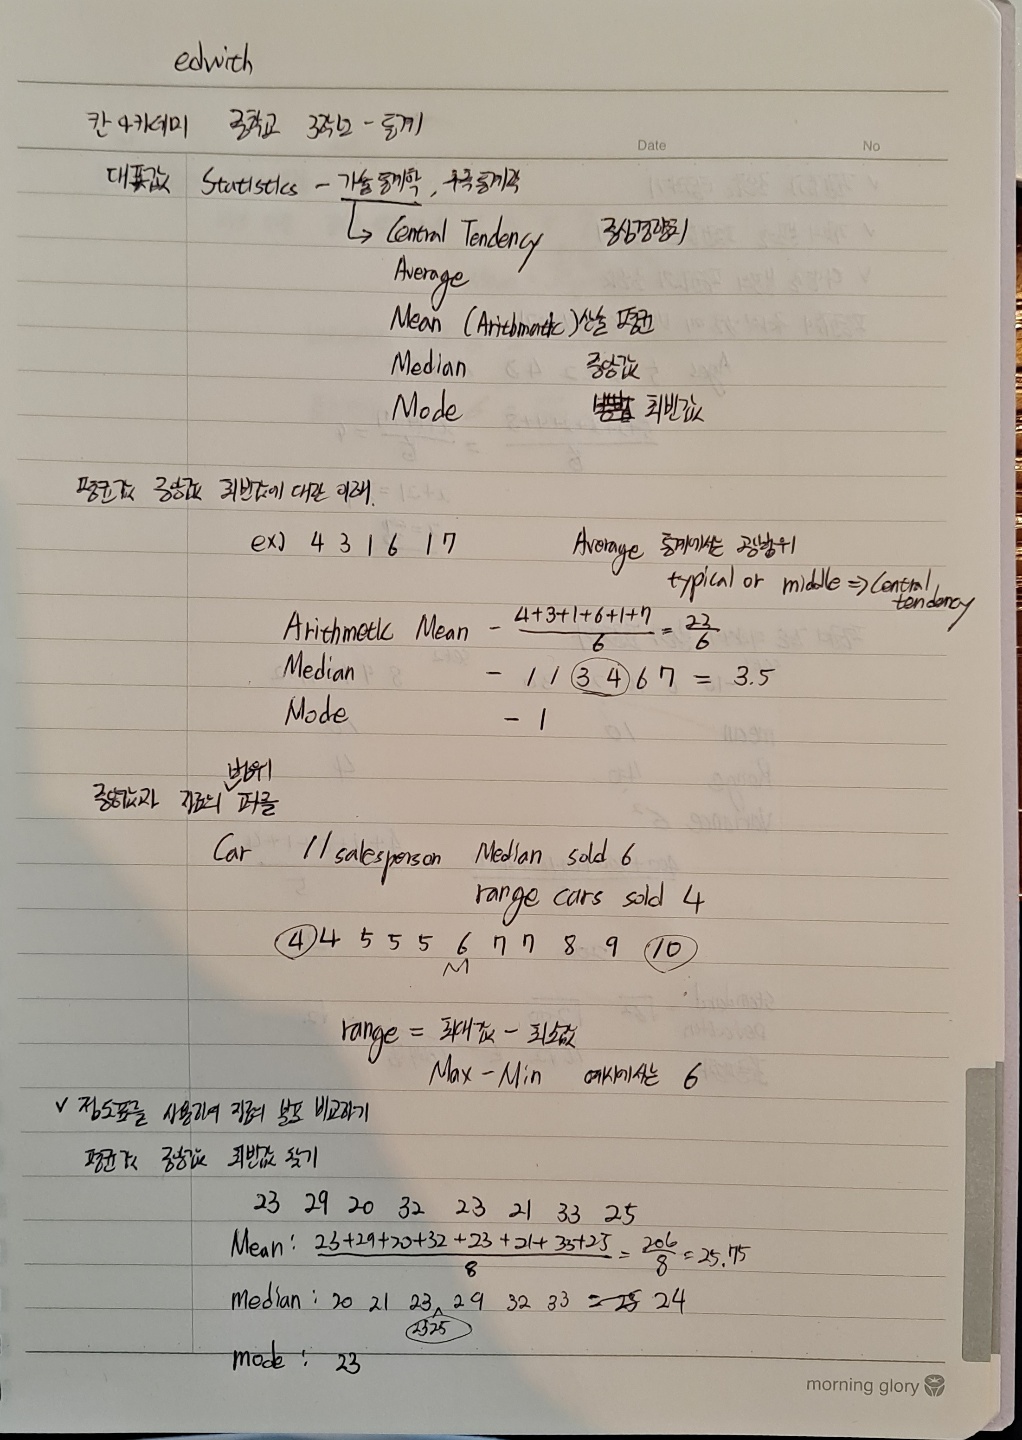 edwith
칸 아카데미 중학교 3학년 - 통계
Date No
대푯값 Statistics - 기술통계학, 추측통계학
↳ Central Tendency 중심경향치
Average
Mean (Arithmetic) 산술 평균
Median 중앙값
Mode 최빈값
평균값 중앙값 최빈값에 대한 이해.
ex) 4 3 1 6 1 7 Average 통계에서는 광범위
typical or middle ⇒ Central
tendency
Arithmetic Mean - 4+3+1+6+1+7 / 6 = 23/6
Median - 1 1 3 4 6 7 = 3.5
Mode - 1
범위
중앙값과 자료의 퍼즐
Car 11 salesperson Median sold 6
range cars sold 4
4 4 5 5 5 6 7 7 8 9 10
M
range = 최대값 - 최소값
Max - Min 예시에서는 6
v 점도표를 사용하여 자료의 분포 비교하기
평균값 중앙값 최빈값 찾기
23 29 20 32 23 21 33 25
Mean: 23+29+20+32+23+21+33+25 / 8 = 206/8 = 25.75
median: 20 21 23 29 32 33 = 24
2325
mode: 23
morning glory